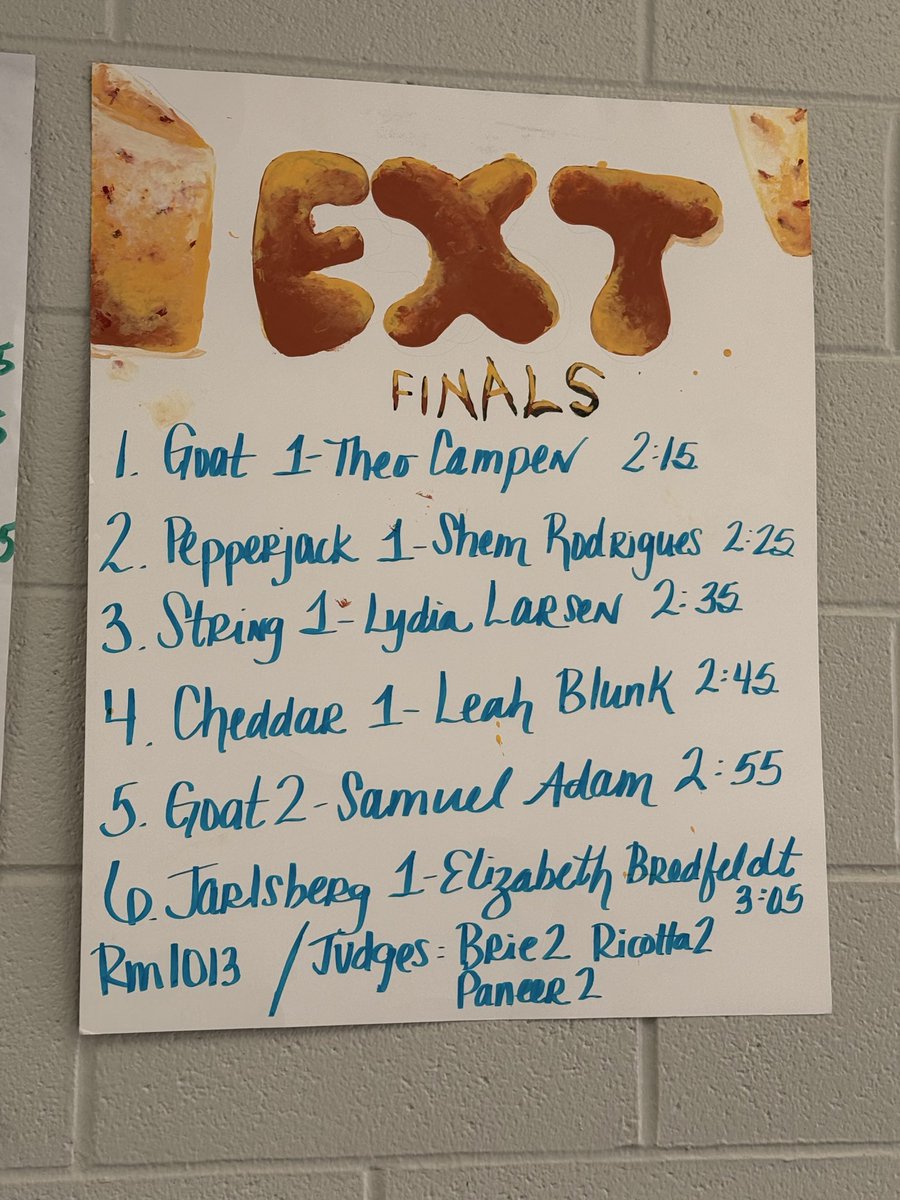 EXT
FINALS
1. Goat 1-Theo Campen 2:15
2. Pepperjack 1-Shem Rodrigues 2:25
3. String 1-Lydia Larsen 2:35
4. Cheddar 1-Leah Blunk 2:45
5. Goat 2-Samuel Adam 2:55
6. Jarlsberg 1-Elizabeth Bredfeldt
3:05
Rm1013 / Judges: Brie 2 Ricotta 2
Paneer 2
5
5
5